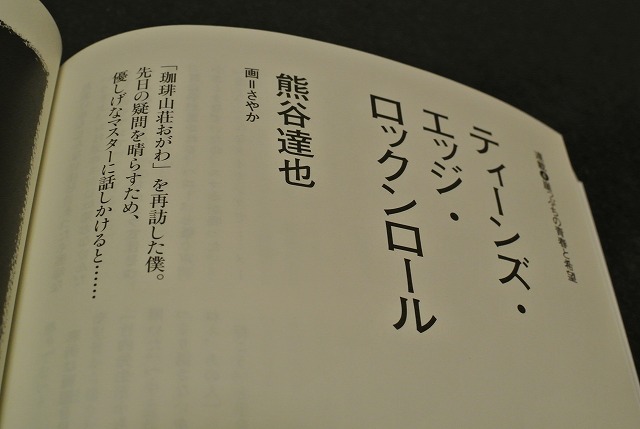 ティーンズ・
エッジ・
ロックンロール
熊谷達也
画=さやか
「珈琲山荘おがわ」を再訪した僕。
先日の疑問を晴らすため、
優しげなマスターに話しかけると……